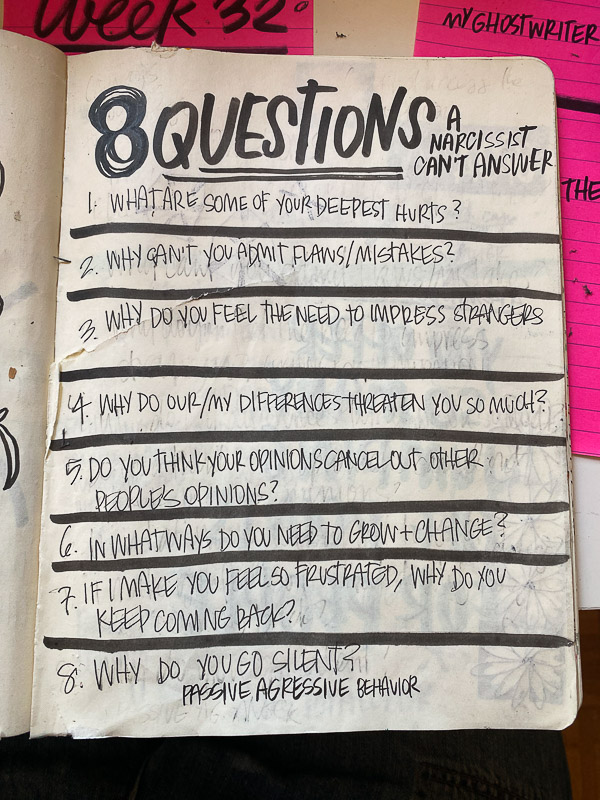 Week 32
MY GHOSTWRITER
8 QUESTIONS A
NARCISSIST
CAN'T ANSWER
THE
1. WHAT ARE SOME OF YOUR DEEPEST HURTS?
2. WHY CAN'T YOU ADMIT FLAWS/MISTAKES?
3. WHY DO YOU FEEL THE NEED TO IMPRESS STRANGERS
4. WHY DO OUR/MY DIFFERENCES THREATEN YOU SO MUCH?
5. DO YOU THINK YOUR OPINIONS CANCEL OUT OTHER
PEOPLE'S OPINIONS?
6. IN WHAT WAYS DO YOU NEED TO GROW + CHANGE?
7. IF I MAKE YOU FEEL SO FRUSTRATED, WHY DO YOU
KEEP COMING BACK?
8. WHY DO YOU GO SILENT?
PASSIVE AGRESSIVE BEHAVIOR